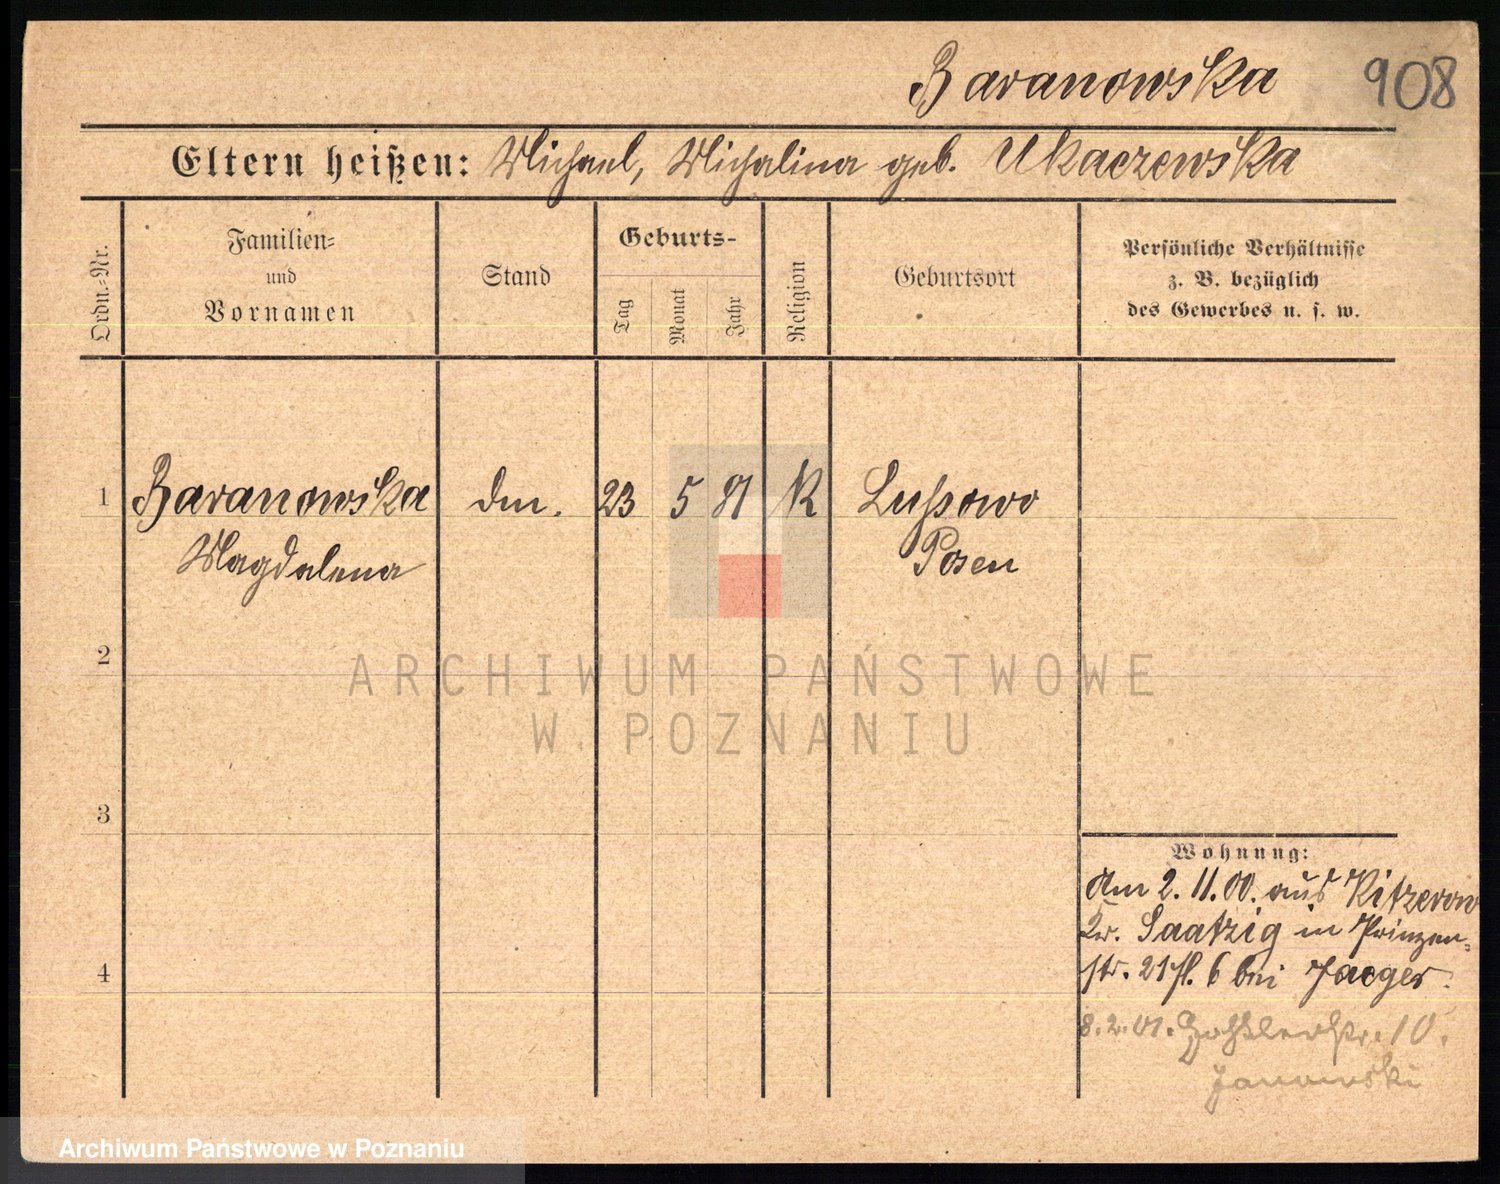 Baranowska 908
Eltern heißen: Michael, Michalina geb. Ukaczewska
Ordn.-Nr.
Familien-
und
Vornamen
Stand
Geburts-
Tag
Monat
Jahr
Religion
Geburtsort
Persönliche Verhältnisse
z. B. bezüglich
des Gewerbes u. s. w.
1 Baranowska 23 5 81 K Lussowo
Magdalena Posen
2
ARCHIWUM PAŃSTWOWE
W POZNANIU
3
Wohnung:
Am 2. 11. 00. aus Kitzerow
Kr. Saatzig in Prinzen-
4 str. 21 fl. 6 bei Jaeger.
8. 2. 01. 10.
Janowski
Archiwum Państwowe w Poznaniu